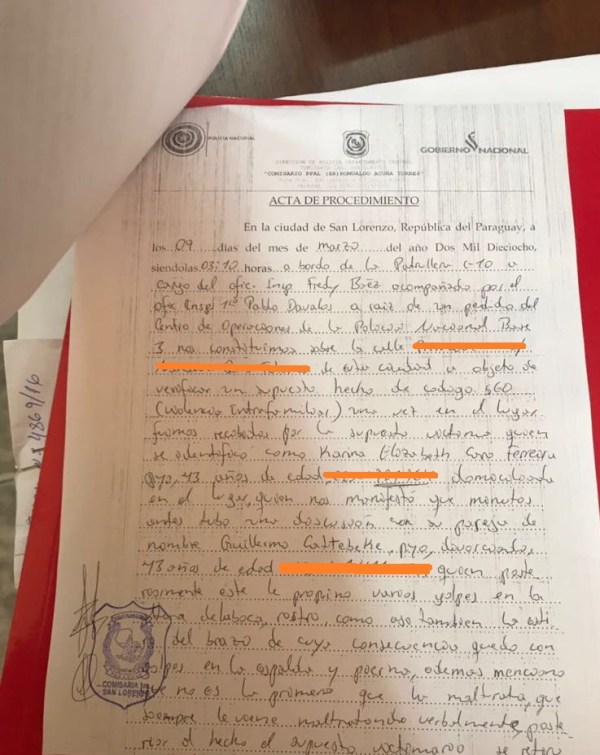 POLICIA NACIONAL
GOBIERNO NACIONAL
DIRECCION DE POLICIA DEPARTAMENTO CENTRAL
"COMISARIO PPAL (SR) ROMUALDO ACUÑA TORRES"
ACTA DE PROCEDIMIENTO
En la ciudad de San Lorenzo, República del Paraguay, a
los 09 días del mes de marzo del año Dos Mil Dieciocho,
siendo las 03:10 horas a bordo de la Patrullera C-10 a
cargo del ofic. Insp Fredy Baez acompañado por el
ofic Insp 1º Pablo Davalos a raiz de un pedido del
Centro de Operaciones de la Policia Nacional Base
3 nos constituimos sobre la calle
de esta ciudad a objeto de
verificar un supuesto hecho de codigo 560
(violencia Intrafamiliar) una vez en el lugar
fuimos recibidos por la supuesta victima quien
se identifico como Karina Elizabeth Caro Ferreira
pya, 43 años de edad, domiciliada
en el lugar, quien nos manifestó que minutos
antes tubo una discusión con su pareja de
nombre Guillermo Cattebeke, pyo, divorciado,
43 años de edad quien poste
riormente este le propino varios golpes en la
de la boca, rostro, como asi tambien la esti
del brazo de cuya consecuencia quedo con
golpes en la espalda y pierna, ademas menciono
que no es la primera que la maltrata, que
siempre la viene maltratando verbalmente, poste
rior al hecho el supuesto victimario se retiro
COMISARIA
SAN LORENZO
4869/16